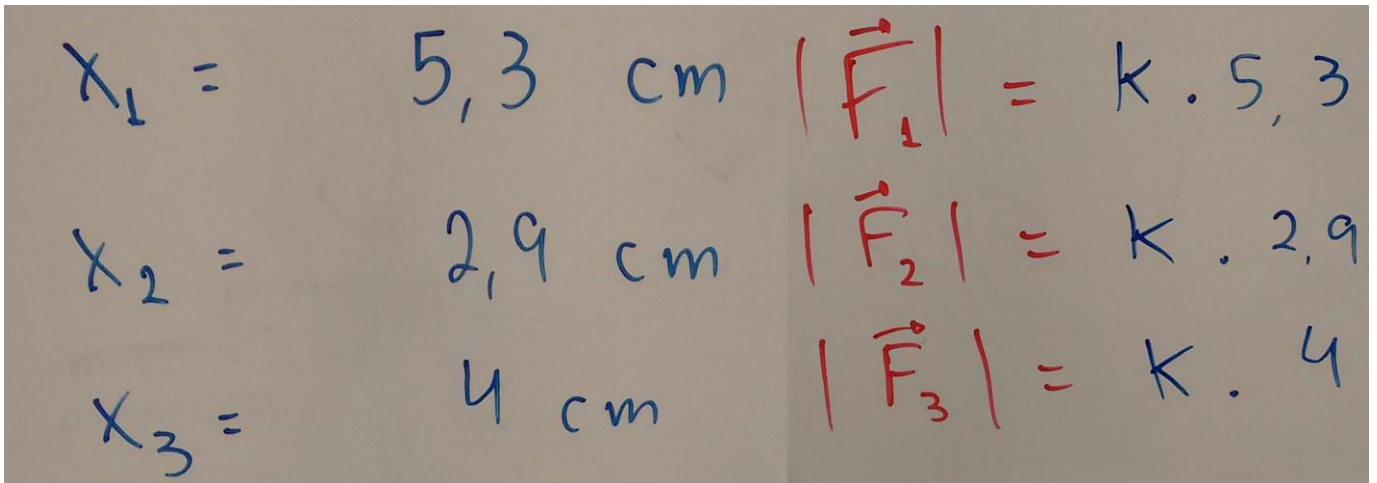 X₁ = 5,3 cm |F⃗₁| = K . 5,3
X₂ = 2,9 cm |F⃗₂| = K . 2,9
X₃ = 4 cm |F⃗₃| = K . 4